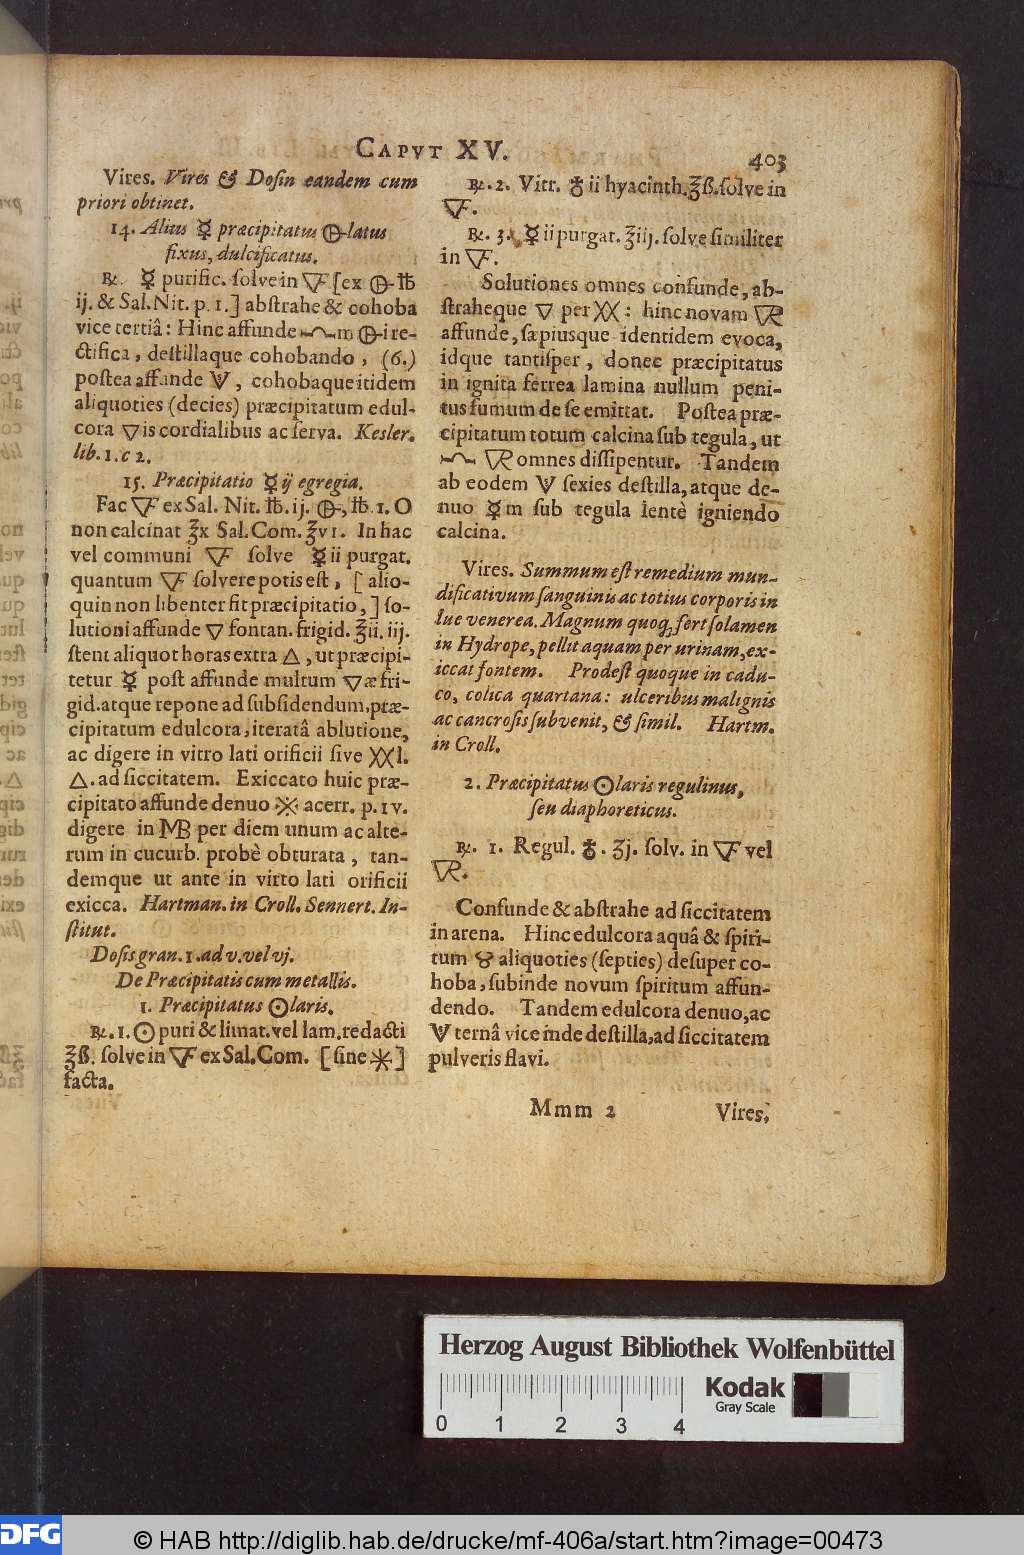 CAPVT XV.
403
Vires. Vires & Dosin eandem cum
priori obtinet.
14. Alius ☿ præcipitatus 🜖latus
fixus, dulcificatus.
℞. ☿ purific. ſolve in 🜅 [ex 🜖 ℔
ij. & Sal. Nit. p. 1.] abſtrahe & cohoba
vice tertiâ: Hinc affunde m 🜖i re-
ctifica, deſtillaque cohobando, (6.)
poſtea affunde, cohobaque itidem
aliquoties (decies) præcipitatum edul-
cora 🜄is cordialibus ac ſerva. Kesler.
lib. 1. c 2.
15. Præcipitatio ☿ij egregia.
Fac 🜅 ex Sal. Nit. ℔. ij. 🜖, ℔. 1. O
non calcinat ℥x Sal. Com. ℥vı. In hac
vel communi 🜅 ſolve ☿ii purgat.
quantum 🜅 ſolvere potis eſt, [alio-
quin non libenter fit præcipitatio,] ſo-
lutioni affunde 🜄 fontan. frigid. ℥ii. iij.
ſtent aliquot horas extra 🜂, ut præcipi-
tetur ☿ poſt affunde multum 🜄æ fri-
gid. atque repone ad ſubſidendum, præ-
cipitatum edulcora, iteratâ ablutione,
ac digere in vitro lati orificii ſive l.
🜂. ad ſiccitatem. Exiccato huic præ-
cipitato affunde denuo acerr. p. ıv.
digere in MB per diem unum ac alte-
rum in cucurb. probè obturata, tan-
demque ut ante in vitro lati orificii
exicca. Hartman. in Croll. Sennert. In-
ſtitut.
Doſis gran. 1. ad v. vel vj.
De Præcipitatis cum metallis.
1. Præcipitatus ☉laris.
℞. 1. ☉ puri & limat. vel lam. redacti
℥ß. ſolve in 🜅 ex Sal. Com. [ſine]
facta.
℞. 2. Vitr. ♁ii hyacinth. ℥ß. ſolve in
🜅.
℞. 3. ☿ii purgat. ℥iij. ſolve ſimiliter
in 🜅.
Solutiones omnes confunde, ab-
ſtraheque 🜄 per : hinc novam 🜆
affunde, ſæpiusque identidem evoca,
idque tantiſper, donec præcipitatus
in ignita ferrea lamina nullum peni-
tus fumum de ſe emittat. Poſtea præ-
cipitatum totum calcina ſub tegula, ut
🜆 omnes diſſipentur. Tandem
ab eodem ſexies deſtilla, atque de-
nuo ☿m ſub tegula lentè igniendo
calcina.
Vires. Summum eſt remedium mun-
dificativum ſanguinis ac totius corporis in
lue venerea. Magnum quoq; fert ſolamen
in Hydrope, pellit aquam per urinam, ex-
iccat fontem. Prodeſt quoque in cadu-
co, colica quartana: ulceribus malignis
ac cancroſis ſubvenit, & ſimil. Hartm.
in Croll.
2. Præcipitatus ☉laris regulinus,
ſeu diaphoreticus.
℞. 1. Regul. ♁. ℥j. ſolv. in 🜅 vel
🜆.
Confunde & abſtrahe ad ſiccitatem
in arena. Hinc edulcora aquâ & ſpiri-
tum aliquoties (ſepties) deſuper co-
hoba, ſubinde novum ſpiritum affun-
dendo. Tandem edulcora denuo, ac
ternâ vice inde deſtilla, ad ſiccitatem
pulveris flavi.
Mmm 2
Vires.
Herzog August Bibliothek Wolfenbüttel
0 1 2 3 4
Kodak
Gray Scale
DFG
© HAB http://diglib.hab.de/drucke/mf-406a/start.htm?image=00473